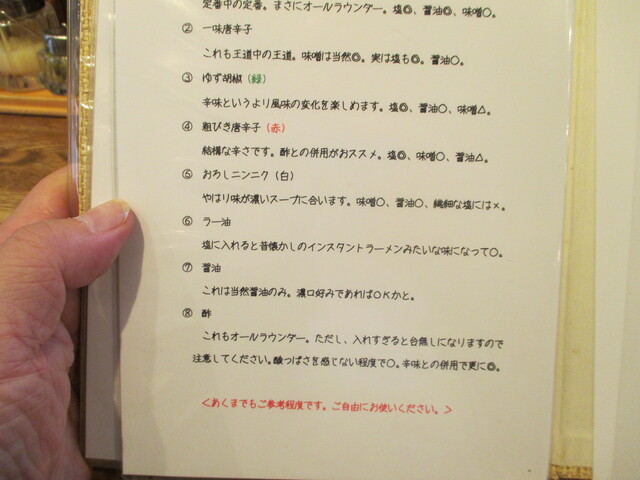 定番中の定番。まさにオールラウンダー。塩◎、醤油◎、味噌○。
② 一味唐辛子
これも王道中の王道。味噌は当然◎。実は塩も◎。醤油○。
③ ゆず胡椒（緑）
辛味というより風味の変化を楽しめます。塩◎、醤油○、味噌△。
④ 粗びき唐辛子（赤）
結構な辛さです。酢との併用がおススメ。塩◎、味噌○、醤油△。
⑤ おろしニンニク（白）
やはり味が濃いスープに合います。味噌◎、醤油○、繊細な塩には×。
⑥ ラー油
塩に入れると昔懐かしのインスタントラーメンみたいな味になって○。
⑦ 醤油
これは当然醤油のみ。濃口好みであればOKかと。
⑧ 酢
これもオールラウンダー。ただし、入れすぎると台無しになりますので
注意してください。酸っぱさを感じない程度で○。辛味との併用で更に◎。
＜あくまでもご参考程度です。ご自由にお使いください。＞